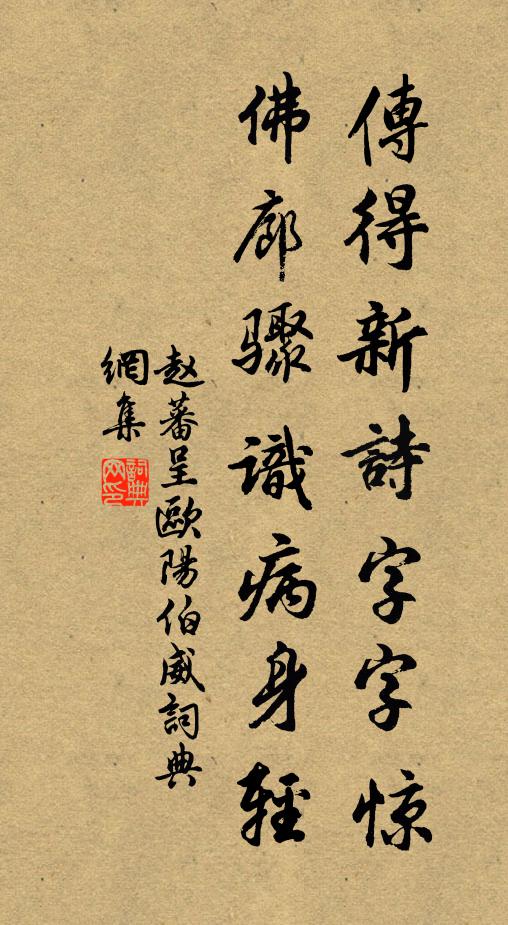 傳得新詩字字惊
佛廊驟識病身輕
赵蕃呈歐陽伯威詞典
網集
詞典
网印